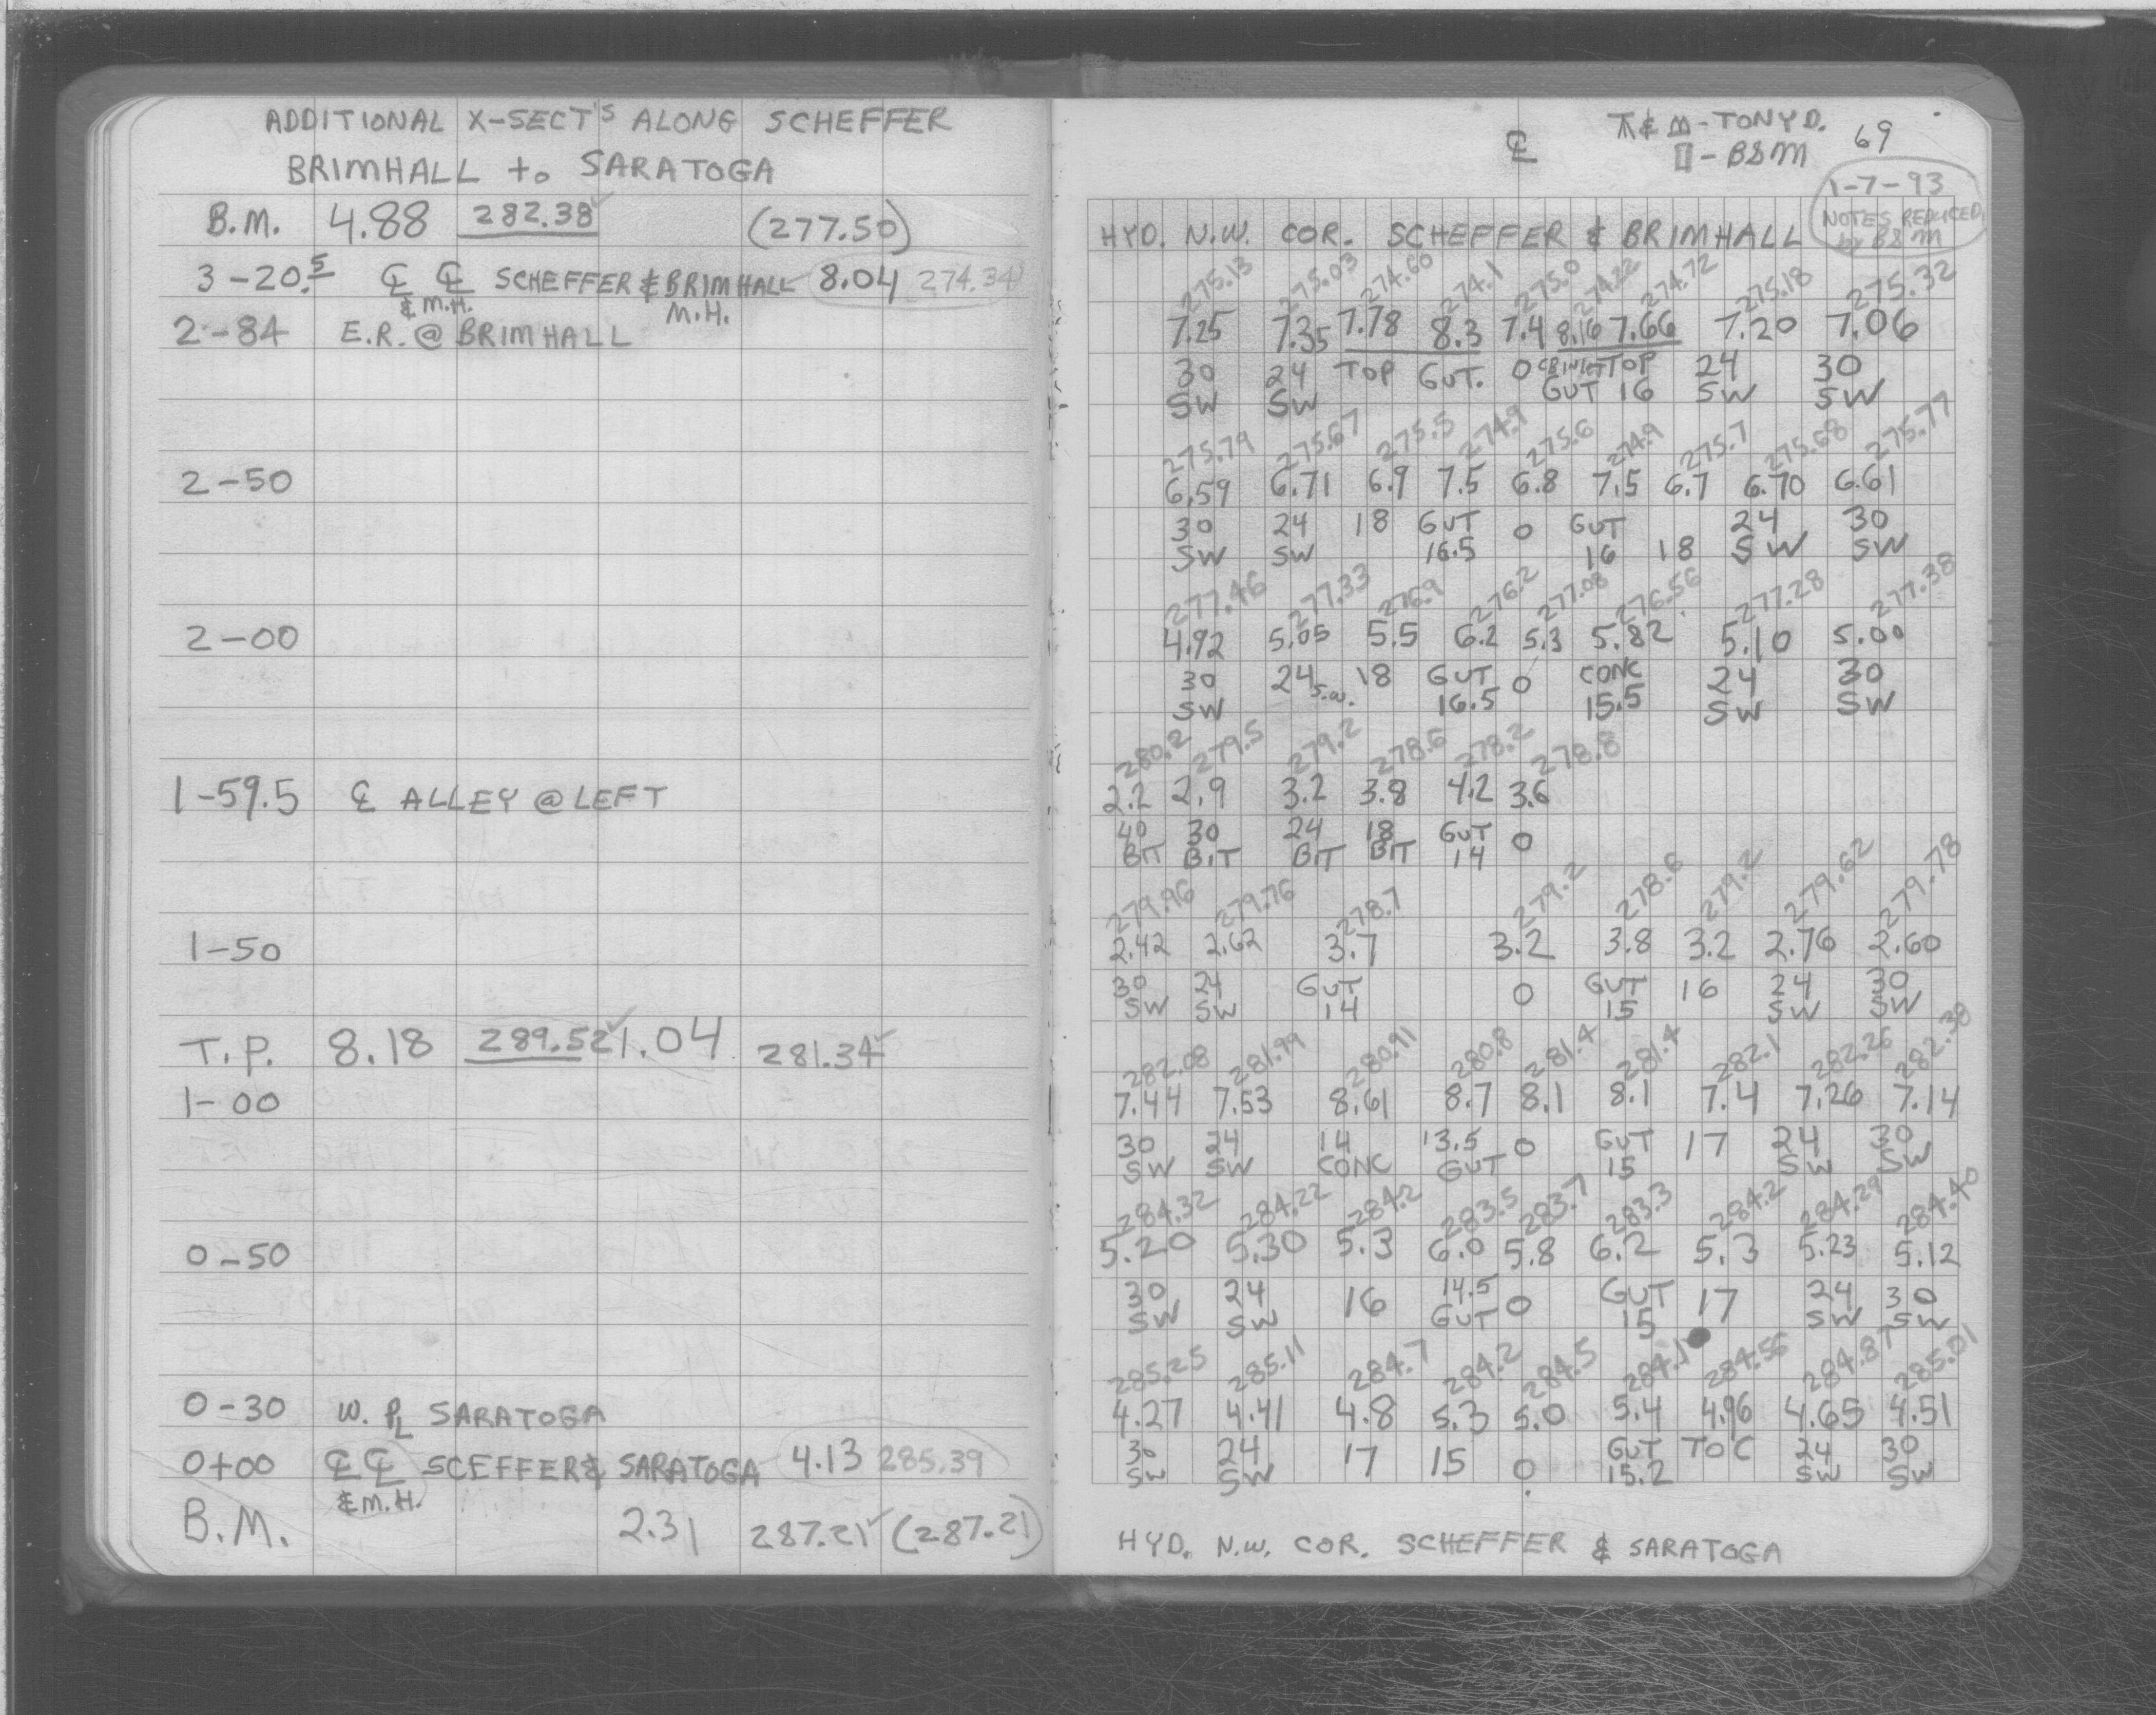 ADDITIONAL X-SECT'S ALONG SCHEFFER
BRIMHALL to SARATOGA
B.M. 4.88 282.38✓ (277.50)
3-20.5 ℄ ℄ SCHEFFER & BRIMHALL 8.04 274.34
& M.H. M.H.
2-84 E.R. @ BRIMHALL
2-50
2-00
1-59.5 ℄ ALLEY @ LEFT
1-50
T.P. 8.18 289.52✓ 1.04 281.34✓
1-00
0-50
0-30 W. PL SARATOGA
0+00 ℄ ℄ SCEFFER & SARATOGA 4.13 285.39
& M.H.
B.M. 2.31 287.21✓ (287.21)
℄ & - TONY D. 69
- BSM
1-7-93
NOTES REDUCED
by BSM
HYD. N.W. COR. SCHEFFER & BRIMHALL
275.13 275.03 274.60 274.1 275.0 274.22 274.72 275.18 275.32
7.25 7.35 7.78 8.3 7.4 8.16 7.66 7.20 7.06
30 24 TOP GUT. 0 TOP 24 30
SW SW GUT 16 SW SW
275.79 275.67 275.5 274.9 275.6 274.9 275.7 275.68 275.77
6.59 6.71 6.9 7.5 6.8 7.5 6.7 6.70 6.61
30 24 18 GUT 0 GUT 24 30
SW SW 16.5 16 18 SW SW
277.46 277.33 276.9 276.2 277.08 276.56 277.28 277.38
4.92 5.05 5.5 6.2 5.3 5.82 5.10 5.00
30 24 18 GUT 0 CONC 24 30
SW S.W. 16.5 15.5 SW SW
280.2 279.5 279.2 278.6 278.2 278.8
2.2 2.9 3.2 3.8 4.2 3.6
40 30 24 18 GUT 0
BIT BIT BIT BIT 14
279.96 279.76 278.7 279.2 278.6 279.2 279.62 279.78
2.42 2.62 3.7 3.2 3.8 3.2 2.76 2.60
30 24 GUT 0 GUT 16 24 30
SW SW 14 15 SW SW
282.08 281.99 280.91 280.8 281.4 281.4 282.1 282.26 282.38
7.44 7.53 8.61 8.7 8.1 8.1 7.4 7.26 7.14
30 24 14 13.5 0 GUT 17 24 30
SW SW CONC GUT 15 SW SW
284.32 284.22 284.2 283.5 283.7 283.3 284.2 284.29 284.40
5.20 5.30 5.3 6.0 5.8 6.2 5.3 5.23 5.12
30 24 16 14.5 0 GUT 17 24 30
SW SW GUT 15 SW SW
285.25 285.11 284.7 284.2 284.5 284.1 284.56 284.87 285.01
4.27 4.41 4.8 5.3 5.0 5.4 4.96 4.65 4.51
30 24 17 15 0 GUT TOC 24 30
SW SW 15.2 SW SW
HYD. N.W. COR. SCHEFFER & SARATOGA